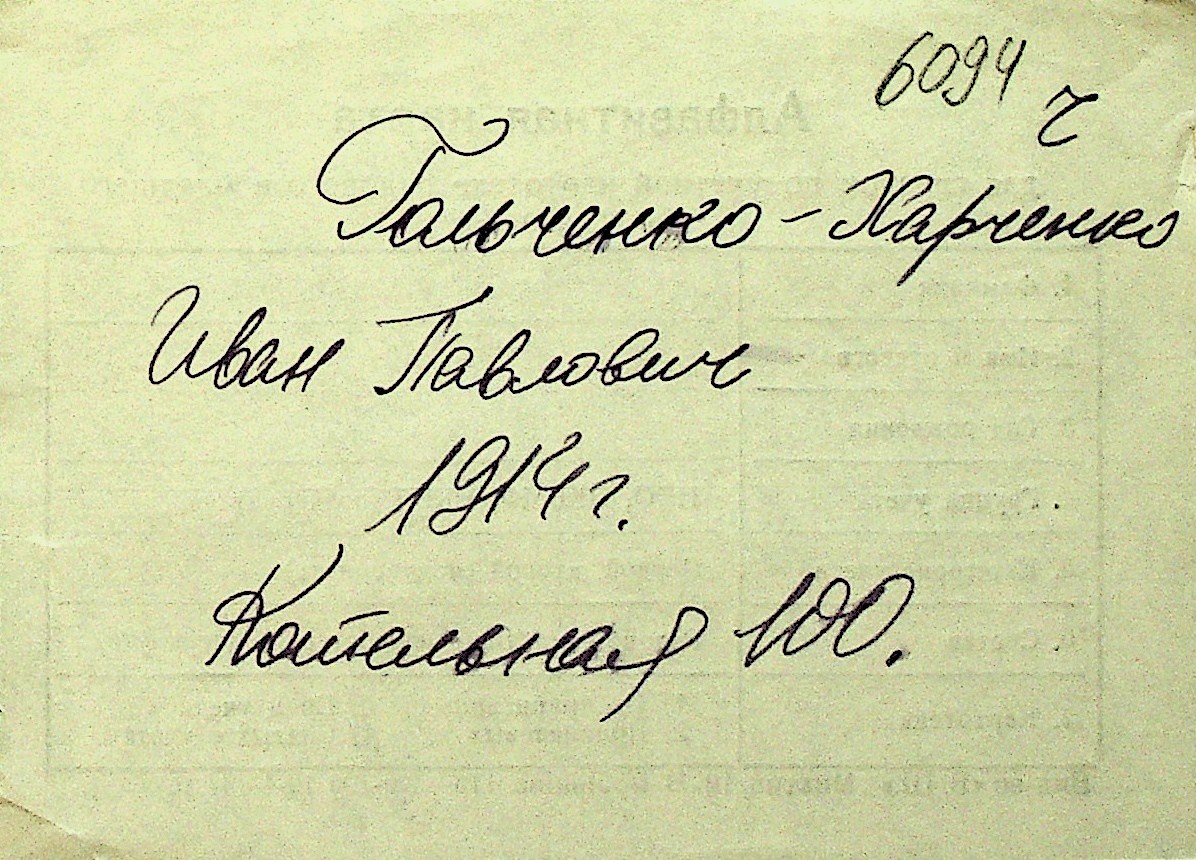 6094
ч
Гальченко - Харченко
Иван Павлович
1914 г.
Котельная 100.